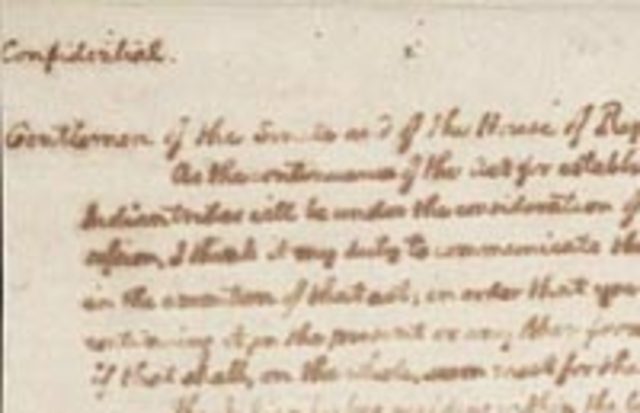 Confidential.
Gentlemen of the Senate and of the House of Rep
As the continuance of the act for establ
Indian tribes will be under the consideration of
session, I think it my duty to communicate the
in the execution of that act, in order that you
continuing it in the present or any other form
if that shall, on the whole, seem most for the